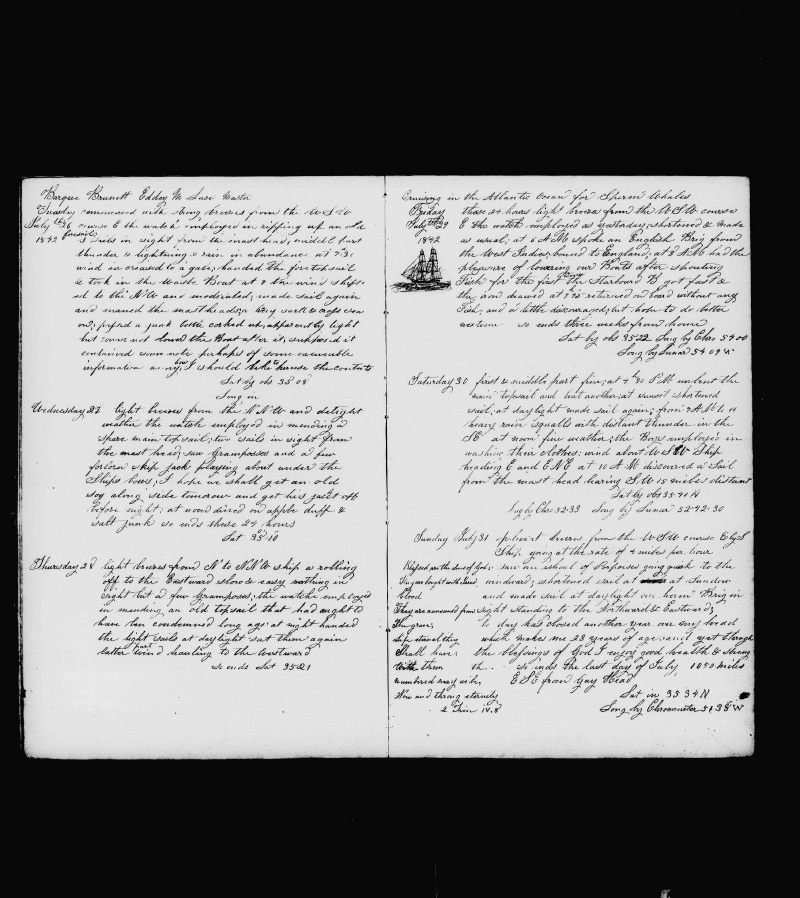 Barque Brunett Edday M Luce Master
Tuesday commenced with strong breezes from the W S W
July 26 course E the watch employed in ripping up an old
1842 foresail; 2 sails in sight from the mast head; middle part
thunder & lightning & rain in abundance at
wind increased to a gale; handed the fore topsail
& took in the Waste Boat at 9 the wind shift-
ed to the N W and moderated; made sail again
and manned the mastheads;
passed a junk bottle corked up, apparently light
but could not lower the Boat after it; supposed it
contained some note perhaps of some
information any how I should like to peruse the contents
Lat by obs 35 08
Long in
Wednesday 27 light breezes from the N N W and delight
weather the watch employed in mending a
spare main topsail; two sails in sight from
the mast head; saw Grampuses and a few
forlorn skip jack playing about under the
Ships bows; I hope we shall get an old
soy along side tomorrow and get his jacket off
before night; at noon dined on apple duff &
salt junk so ends these 24 hours
Lat 35 10
Thursday 28 light breezes from N to N N W ship a rolling
off to the Eastward slow & easy nothing in
sight but a few Grampuses; the watch employed
in mending an old topsail that had ought to
have been condemned long ago; at night handed
the light sails at daylight set them again
latter part wind hauling to the Westward
so ends Lat 35 21
Cruising in the Atlantic Ocean for Sperm Whales
Friday these 24 hours light breezes from the W S W course
July 29 E the watch employed as yesterday; shortened & made
1842 as usual; at 6 A M spoke an English Brig from
the West Indies, bound to England; at 8 A M had the
pleasure of lowering our Boats after spouting
Fish for the first time Starboard B got fast &
the iron drawed at 9 45 returned on board without any
Fish; and a little discouraged; but hope to do better
next time so ends three weeks from home
Lat by obs 35 22 Long by Chro 54 00
Long by Lunar 54 09 W
Saturday 30 first & middle part fine; at 4 30 P M unbent the
main topsail and bent another; at sunset shortened
sail; at daylight made sail again; from 7 A M to 11
heavy rain squalls with distant thunder in the
SE at noon fine weather; the Boys employed in
washing their clothes; wind about W S W Ship
heading E and E N E at 10 A M discovered a Sail
from the mast head bearing S W 15 miles distant
Lat by obs 35 40 N
Long by Chro 52-33 Long by Lunar 52-42-30
Sunday July 31 pleasant breezes from the W S W course E by S
Ship going at the rate of 4 miles per hour
saw a school of Porpoises going quick to the
windward; shortened sail at at Sundown
Blood and made sail at daylight one herm Brig in
They are numbered from sight standing to the Northward & Eastward;
The grave; to day has closed another year over my head
which makes me 23 years of age; and yet through
Shall have the blessings of God I enjoy good health & strong
with them th so ends the last day of July, 1050 miles
numbered may E S E from Gay Head
Now and through eternity Lat in 35 34 N
2 Tim IV. 8 Long by Chronometer 51 38 W